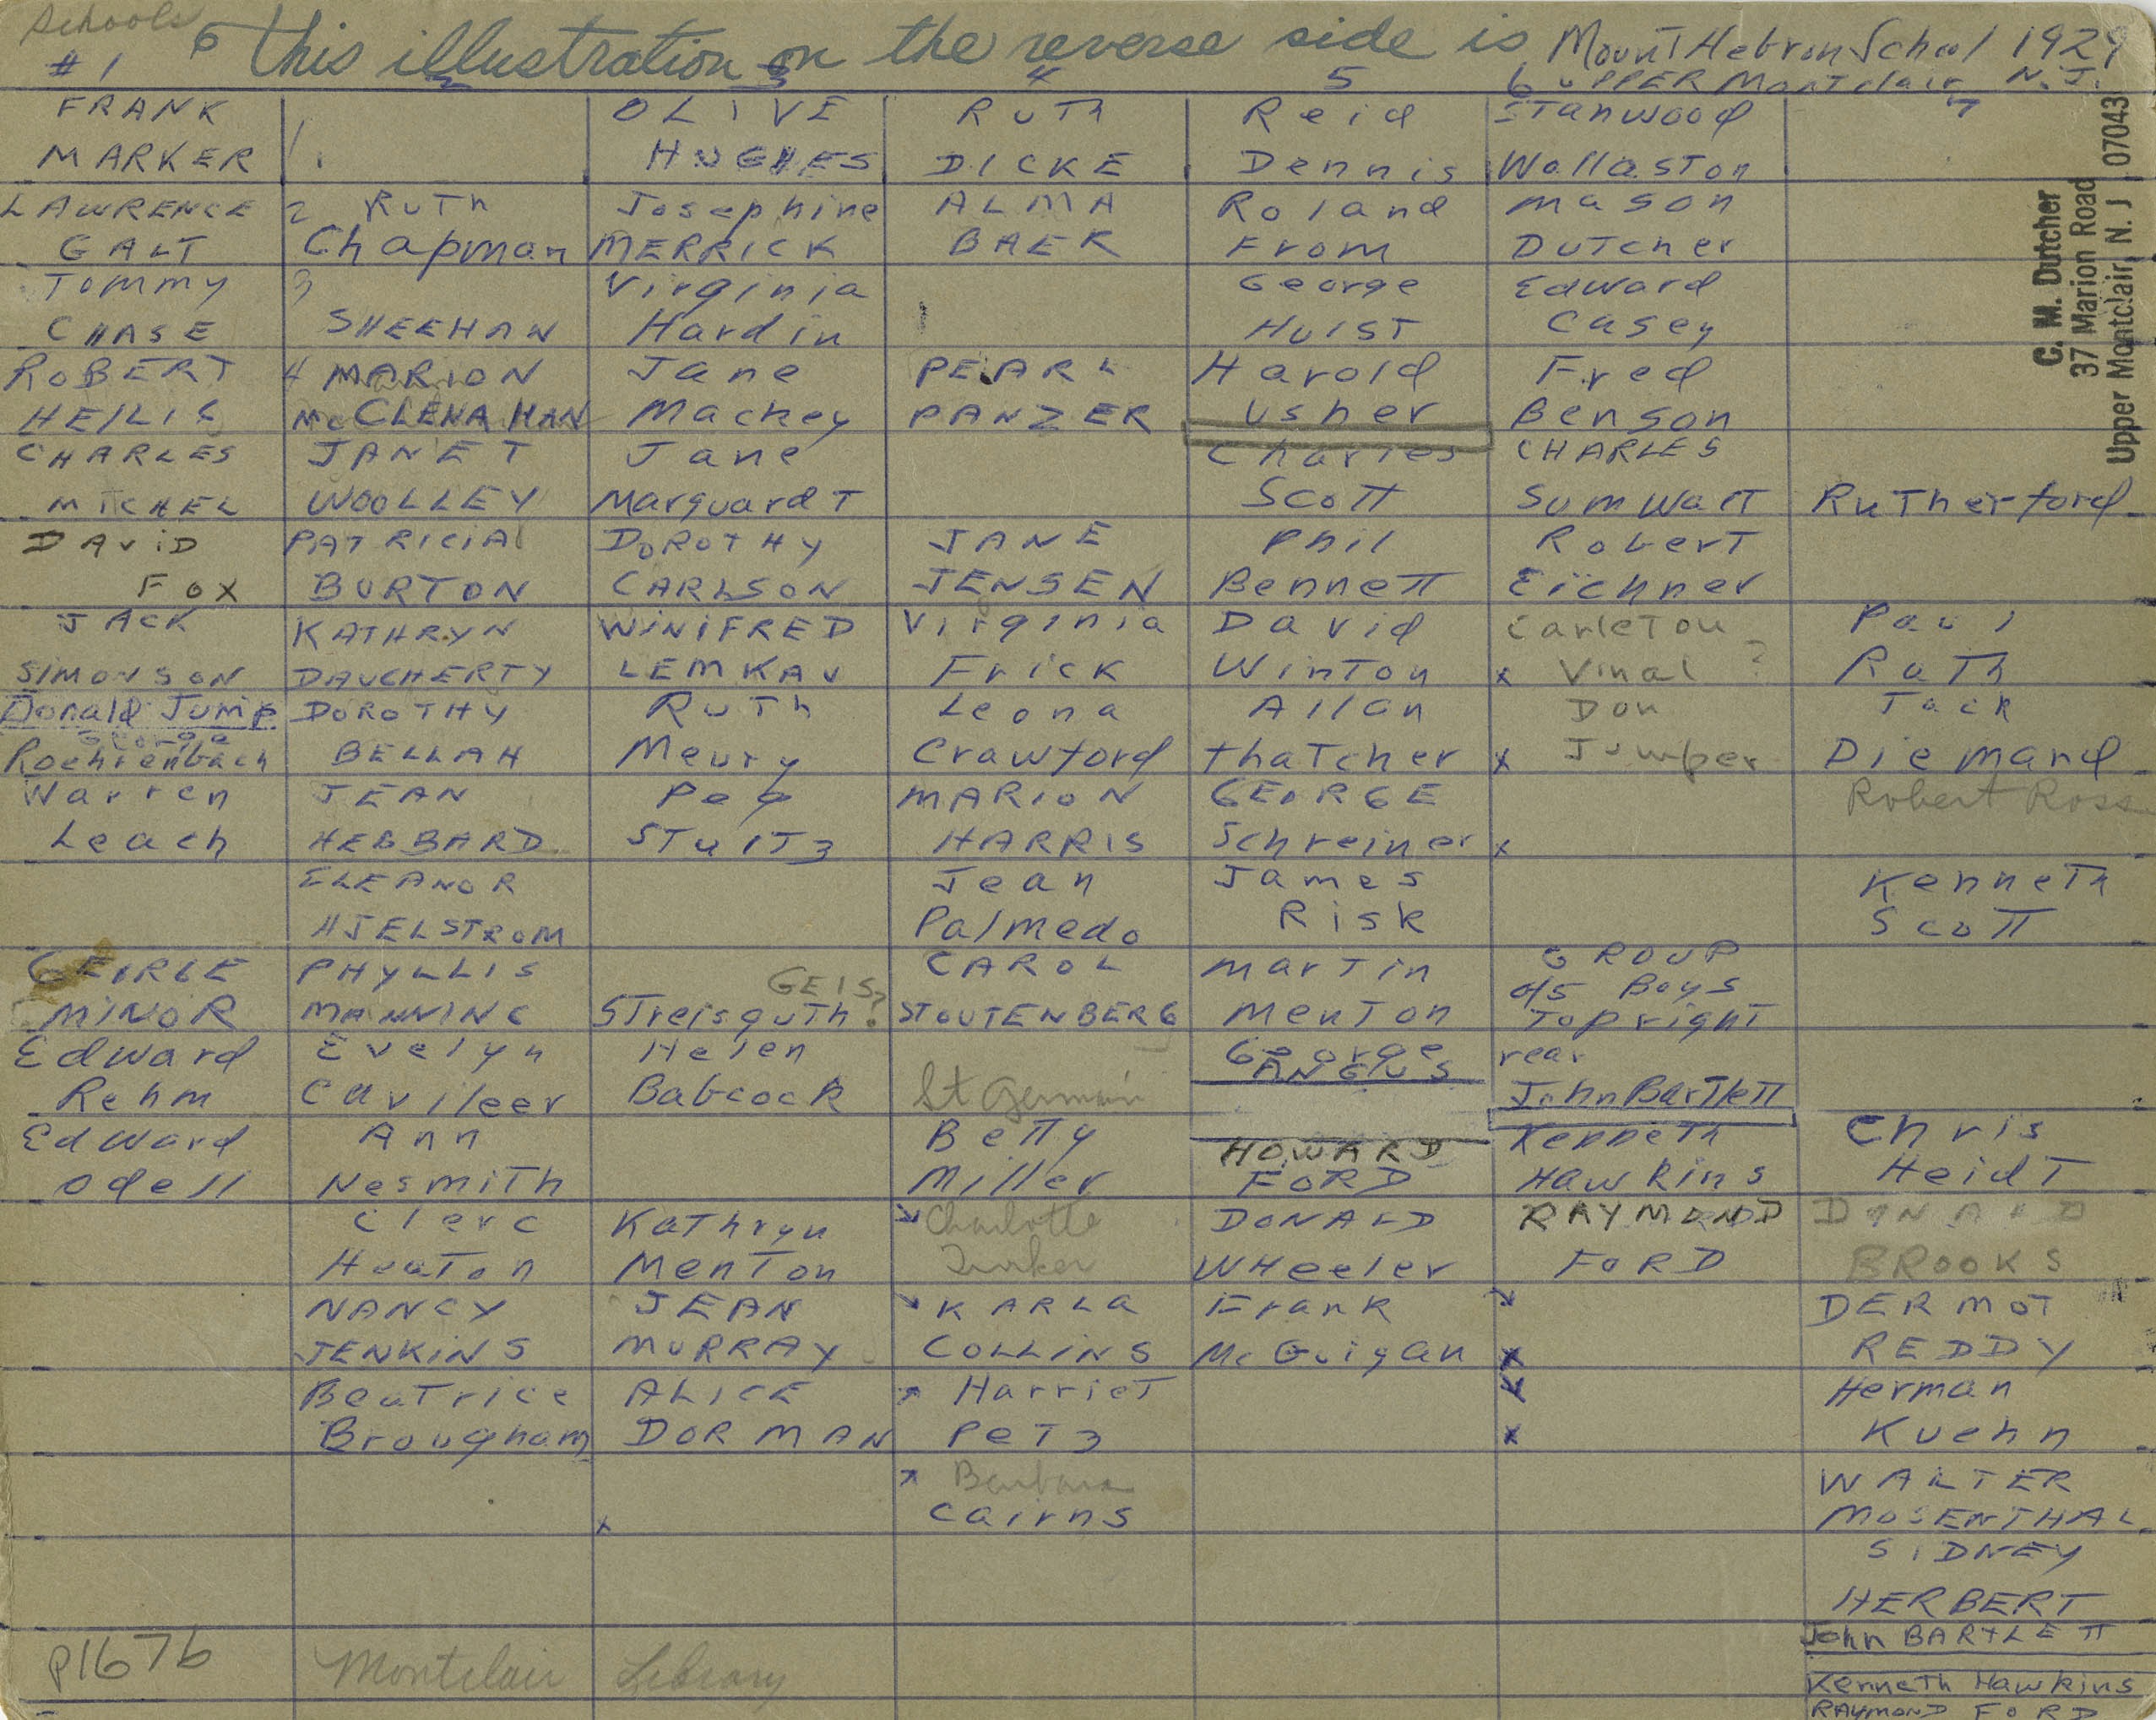 Schools
6 This illustration on the reverse side is Mount Hebron School 1929
UPPER Montclair, N.J.
#1 2 3 4 5 6 7
FRANK 1. OLIVE RUTH Reid Stanwood
MARKER HUGHES DICKE Dennis Wollaston
LAWRENCE 2 RUTH Josephine ALMA Roland Mason
GALT Chapman MERRICK BAER From Dutcher
TOMMY 3 Virginia George Edward
CHASE SHEEHAN Hardin HulsT Casey
ROBERT 4 MARION Jane PEARL Harold Fred
HEILIG McCLENAHAN Mackey PANZER Usher Benson
CHARLES JANET Jane Charles CHARLES
MITCHEL WOOLLEY MarquardT Scott SumwalT RuTherford
DAVID PATRICIA DOROTHY JANE Phil RoberT
FOX BURTON CARLSON JENSEN Bennett Eichner
JACK KATHRYN WINIFRED Virginia David CarleTon Paul
SIMONSON DAUGHERTY LEMKAU Frick WinTon x Vinal ? RuTh
Donald Jump DOROTHY RuTh Leona Allan Don Jack
George
Roehrenbach BELLAH Meury Crawford ThaTcher x Jumper Diemand
Warren JEAN Peg MARION GEORGE Robert Ross
Leach HEBBARD STulTz HARRIS Schreiner x
ELEANOR Jean James KenneTh
HJELSTROM Palmedo Risk Scott
GEORGE PHYLLIS GEIS? CAROL MarTin GROUP
MINOR MANNING STreisguth? STOUTENBERG MenTon of 5 Boys
Top righT
Edward Evelyn Helen George rear
ANGUS
Rehm Cavileer Babcock St Germain John BarTlett
Edward Ann Betty HOWARD KenneTh Chris
Odell NesmiTh Miller FORD Hawkins HeidT
Clerc KaThryn Charlotte DONALD RAYMOND DONALD
HeaTon MenTon Tinker WHeeler FORD BROOKS
NANCY JEAN KARLA Frank DERMOT
JENKINS MURRAY COLLINS McGuigan x REDDY
BeaTrice ALICE HarrieT x Herman
Brougham DORMAN PeTz x Kuehn
Barbara WALTER
x Cairns MOSENTHAL
SIDNEY
HERBERT
John BARTLETT
P1676 Montclair Library
KenneTh Hawkins
RAYMOND FORD
C. M. Dutcher
37 Marion Road
Upper Montclair, N. J. 07043